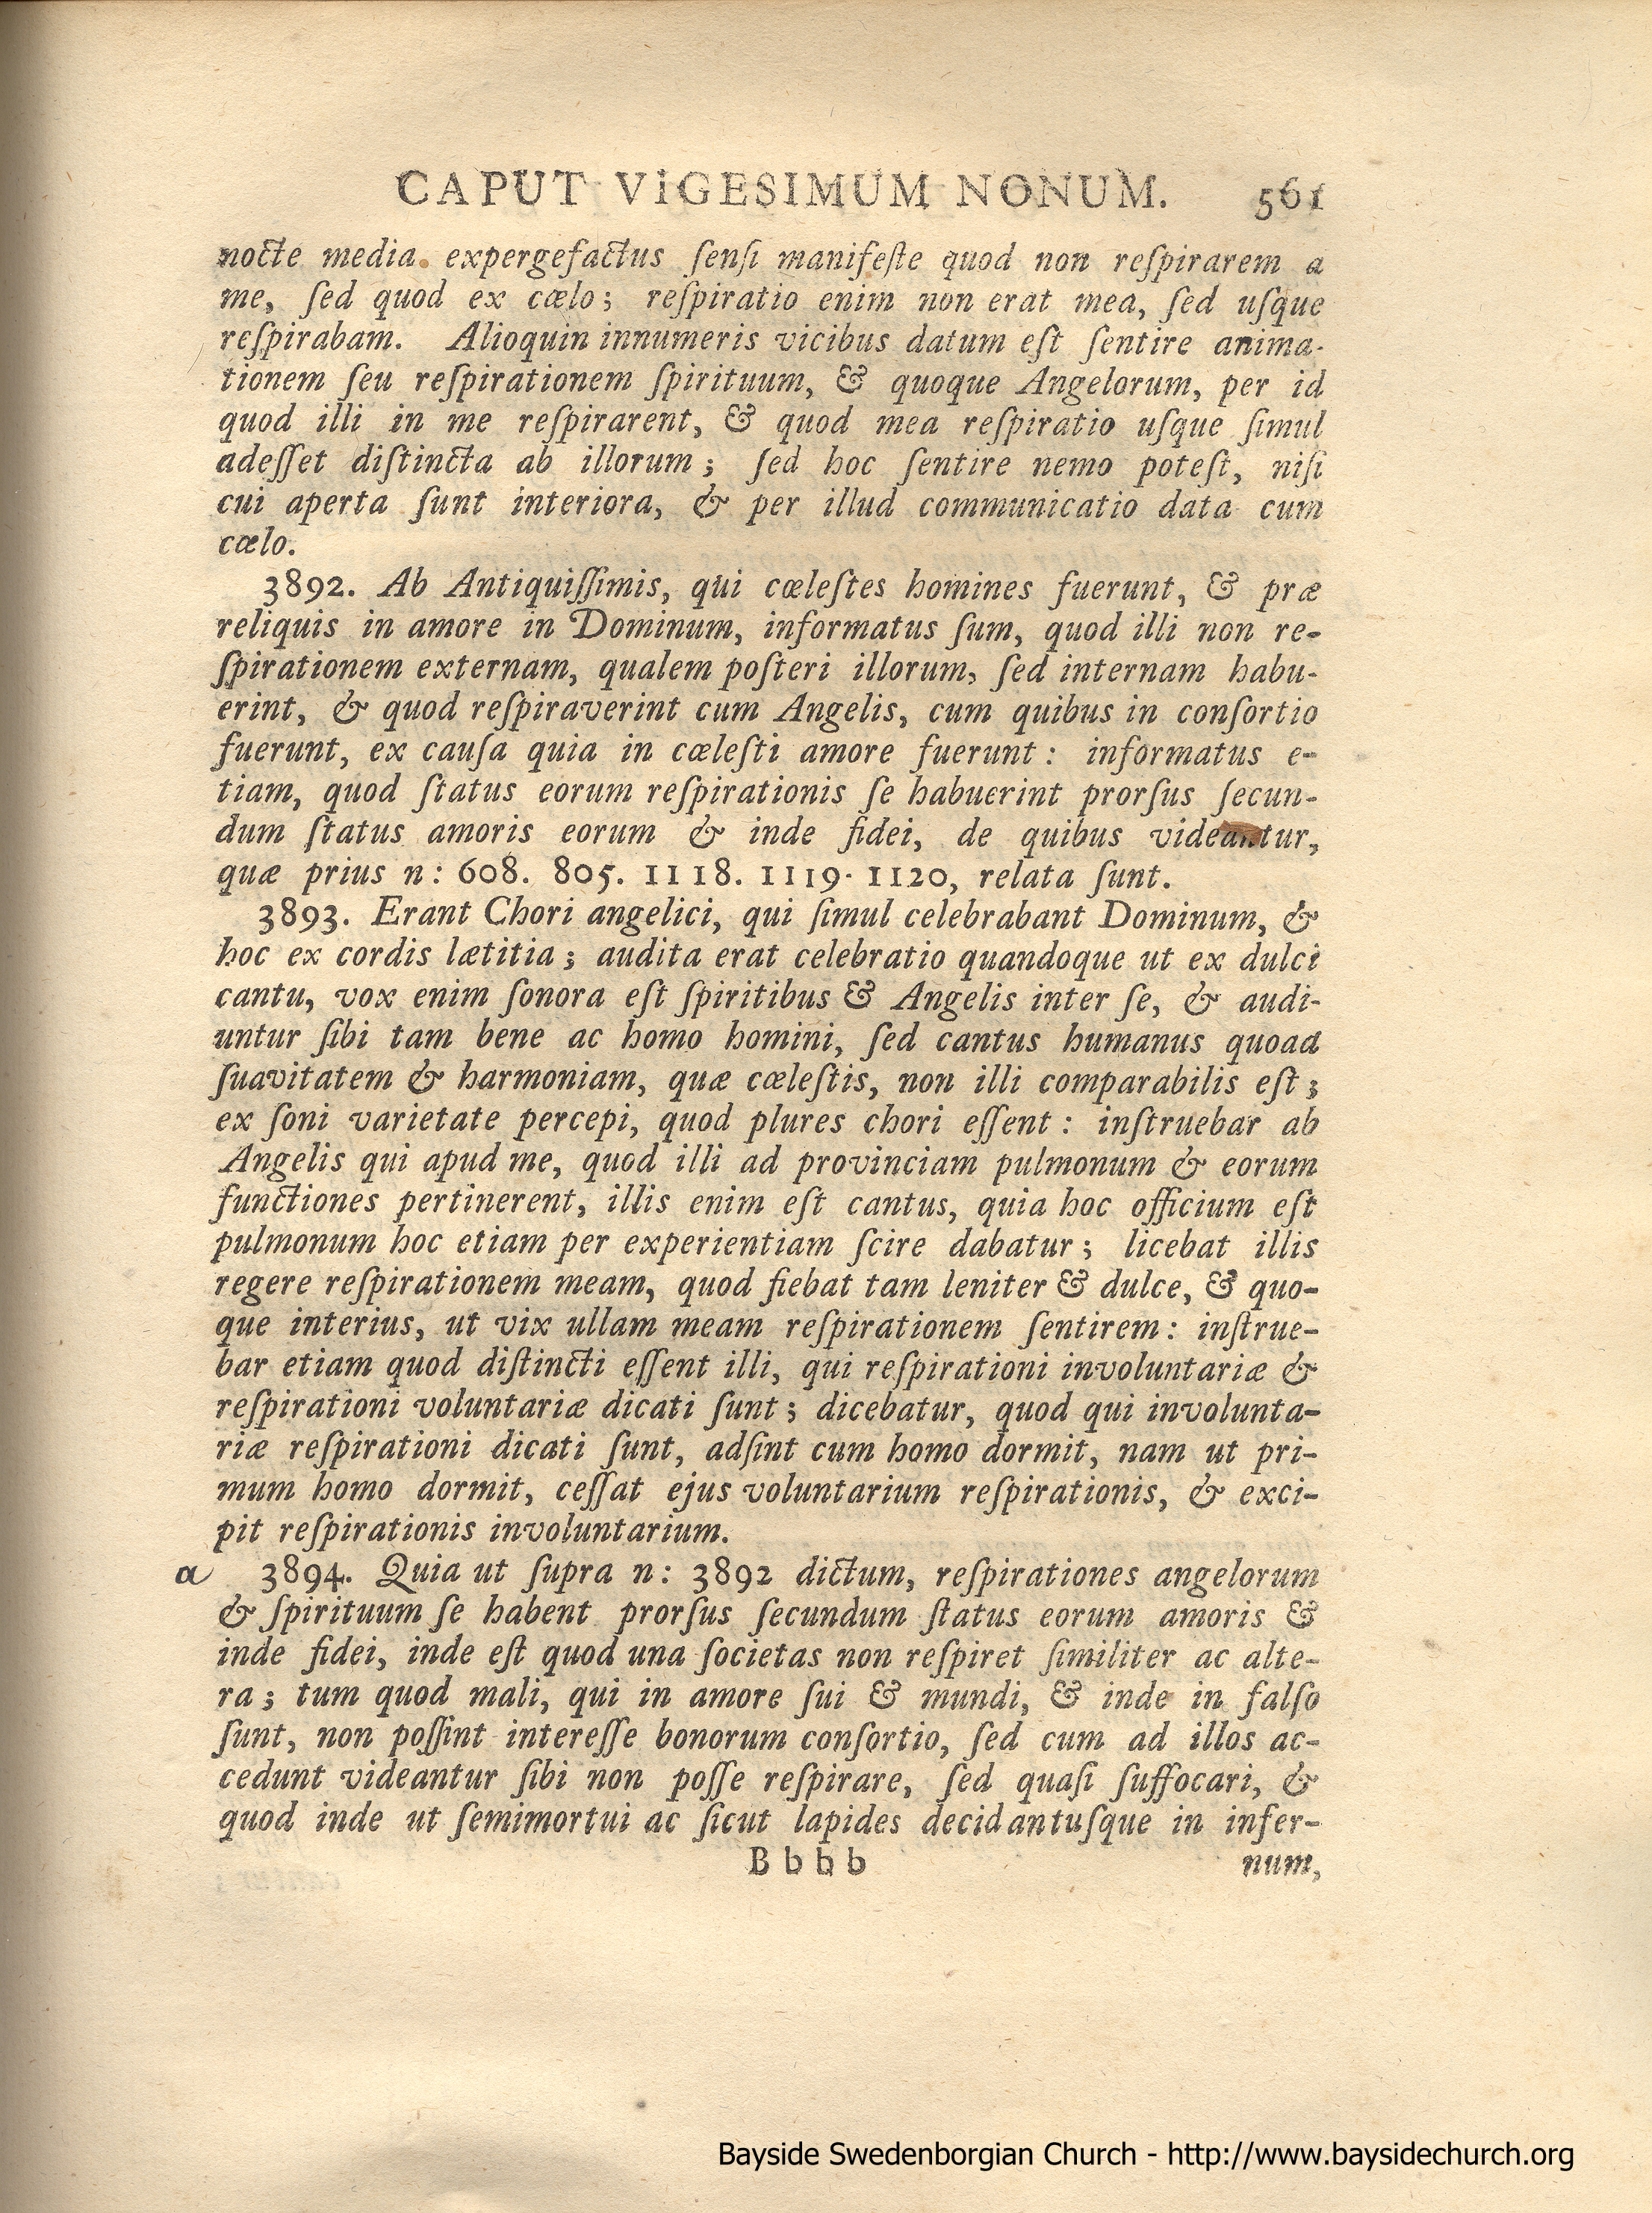 CAPUT VIGESIMUM NONUM. 561
nocte media expergefactus ſenſi manifeſte quod non reſpirarem a
me, ſed quod ex cœlo; reſpiratio enim non erat mea, ſed uſque
reſpirabam. Alioquin innumeris vicibus datum eſt ſentire anima-
tionem ſeu reſpirationem ſpirituum, & quoque Angelorum, per id
quod illi in me reſpirarent, & quod mea reſpiratio uſque ſimul
adeſſet diſtincta ab illorum; ſed hoc ſentire nemo poteſt, niſi
cui aperta ſunt interiora, & per illud communicatio data cum
cœlo.
3892. Ab Antiquiſſimis, qui cœleſtes homines fuerunt, & præ
reliquis in amore in Dominum, informatus ſum, quod illi non re-
ſpirationem externam, qualem poſteri illorum, ſed internam habu-
erint, & quod reſpiraverint cum Angelis, cum quibus in conſortio
fuerunt, ex cauſa quia in cœleſti amore fuerunt: informatus e-
tiam, quod ſtatus eorum reſpirationis ſe habuerint prorſus ſecun-
dum ſtatus amoris eorum & inde fidei, de quibus videantur,
quæ prius n: 608. 805. 1118. 1119. 1120, relata ſunt.
3893. Erant Chori angelici, qui ſimul celebrabant Dominum, &
hoc ex cordis lætitia; audita erat celebratio quandoque ut ex dulci
cantu, vox enim ſonora eſt ſpiritibus & Angelis inter ſe, & audi-
untur ſibi tam bene ac homo homini, ſed cantus humanus quoad
ſuavitatem & harmoniam, quæ cœleſtis, non illi comparabilis eſt;
ex ſoni varietate percepi, quod plures chori eſſent: inſtruebar ab
Angelis qui apud me, quod illi ad provinciam pulmonum & eorum
functiones pertinerent, illis enim eſt cantus, quia hoc officium eſt
pulmonum hoc etiam per experientiam ſcire dabatur; licebat illis
regere reſpirationem meam, quod fiebat tam leniter & dulce, & quo-
que interius, ut vix ullam meam reſpirationem ſentirem: inſtrue-
bar etiam quod diſtincti eſſent illi, qui reſpirationi involuntariæ &
reſpirationi voluntariæ dicati ſunt; dicebatur, quod qui involunta-
riæ reſpirationi dicati ſunt, adſint cum homo dormit, nam ut pri-
mum homo dormit, ceſſat ejus voluntarium reſpirationis, & exci-
pit reſpirationis involuntarium.
a 3894. Quia ut ſupra n: 3892 dictum, reſpirationes angelorum
& ſpirituum ſe habent prorſus ſecundum ſtatus eorum amoris &
inde fidei, inde eſt quod una ſocietas non reſpiret ſimiliter ac alte-
ra; tum quod mali, qui in amore ſui & mundi, & inde in falſo
ſunt, non poſſint intereſſe bonorum conſortio, ſed cum ad illos ac-
cedunt videantur ſibi non poſſe reſpirare, ſed quaſi ſuffocari, &
quod inde ut ſemimortui ac ſicut lapides decidantuſque in infer-
B b b b num,
Bayside Swedenborgian Church - http://www.baysidechurch.org